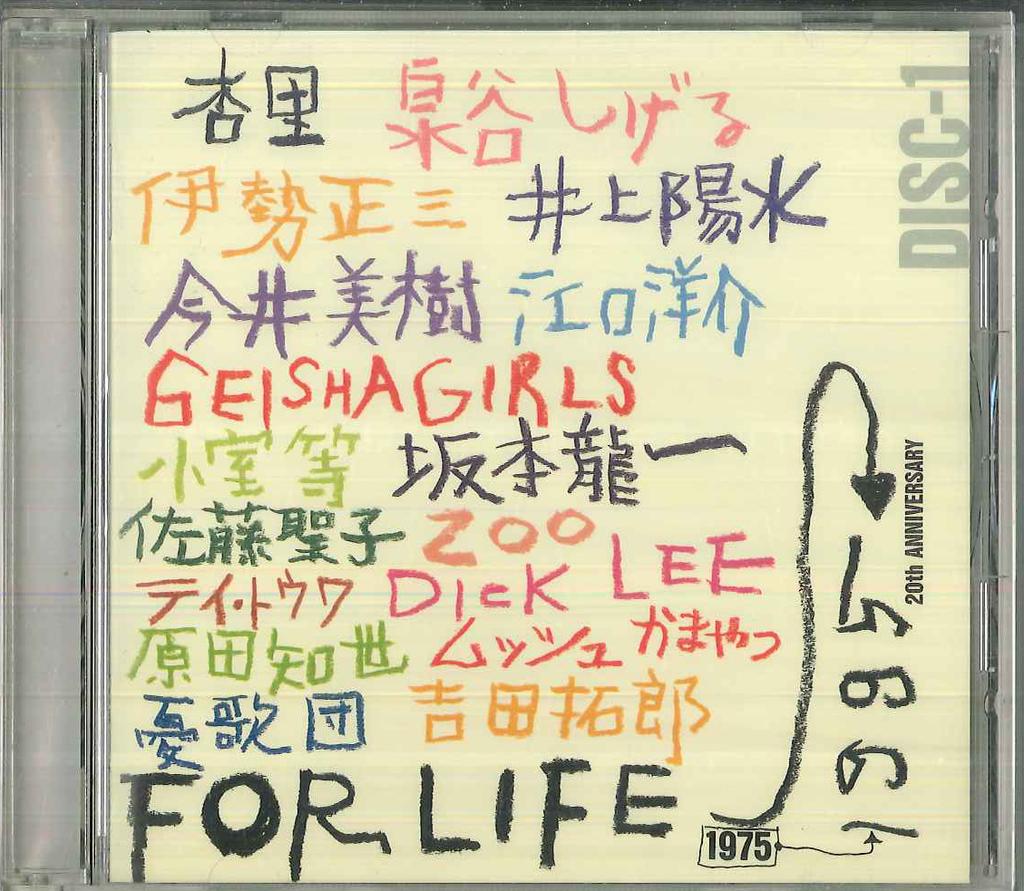 杏里 泉谷しげる
伊勢正三 井上陽水
今井美樹 江口洋介
GEISHA GIRLS
小室等 坂本龍一
佐藤聖子 ZOO
テイ・トウワ DICK LEE
原田知世 ムッシュかまやつ
憂歌団 吉田拓郎
FOR LIFE
1975
1995
20th ANNIVERSARY
DISC-1